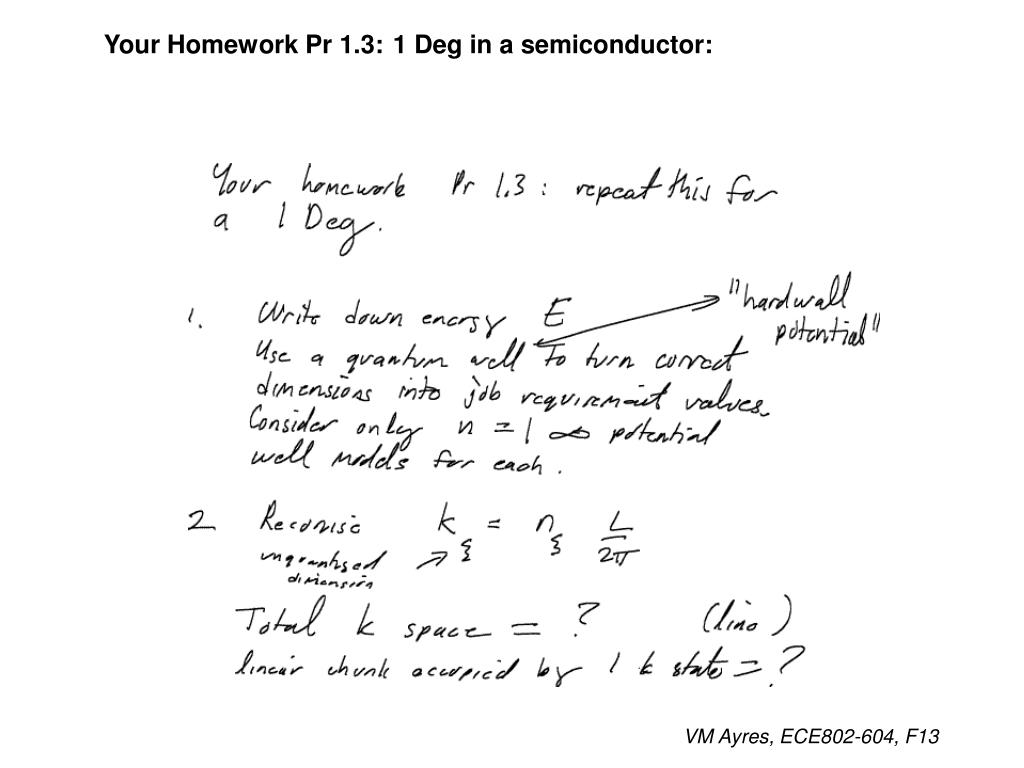 Your Homework Pr 1.3: 1 Deg in a semiconductor:
Your homework Pr 1.3 : repeat this for
a 1 Deg.
1. Write down energy E
"hardwall
potential"
Use a quantum well to turn correct
dimensions into job requirement values.
Consider only n = 1 ∞ potential
well models for each.
2 Recognise k_ξ = n_ξ L/2π
unquantised
dimension
Total k space = ? (line)
linear chunk occupied by 1 k state = ?
VM Ayres, ECE802-604, F13